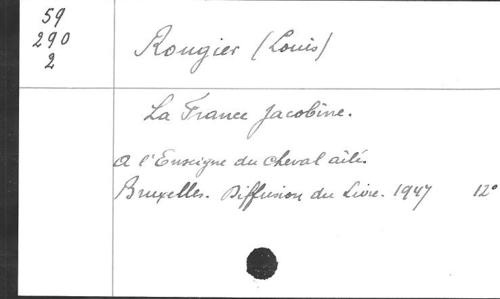 59
290
2
Rougier (Louis)
La France Jacobine.
A l'Enseigne du Cheval ailé.
Bruxelles. Diffusion du Livre. 1947 12°